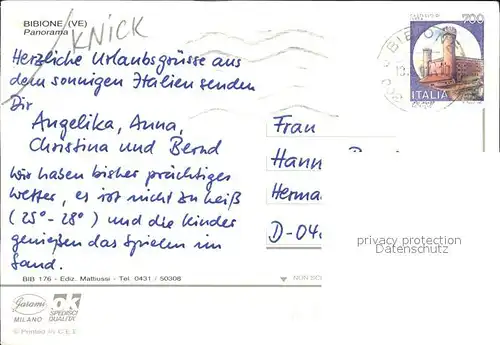 BIBIONE (VE)
Panorama
KNICK
700
ITALIA
BIBIONE
Herzliche Urlaubsgrüsse aus
dem sonnigen Italien senden
Dir
Angelika, Anna,
Christina und Bernd
Wir haben bisher prächtiges
Wetter, es ist nicht zu heiß
(25°-28°) und die Kinder
genießen das Spielen im
Sand.
Frau
Hann
Herma
D-04
privacy protection
Datenschutz
BIB 176 - Ediz. Mattiussi - Tel. 0431 / 50308
Garami
MILANO
ok
SPEDISCI
QUALITA'
© Printed in C.E.E.